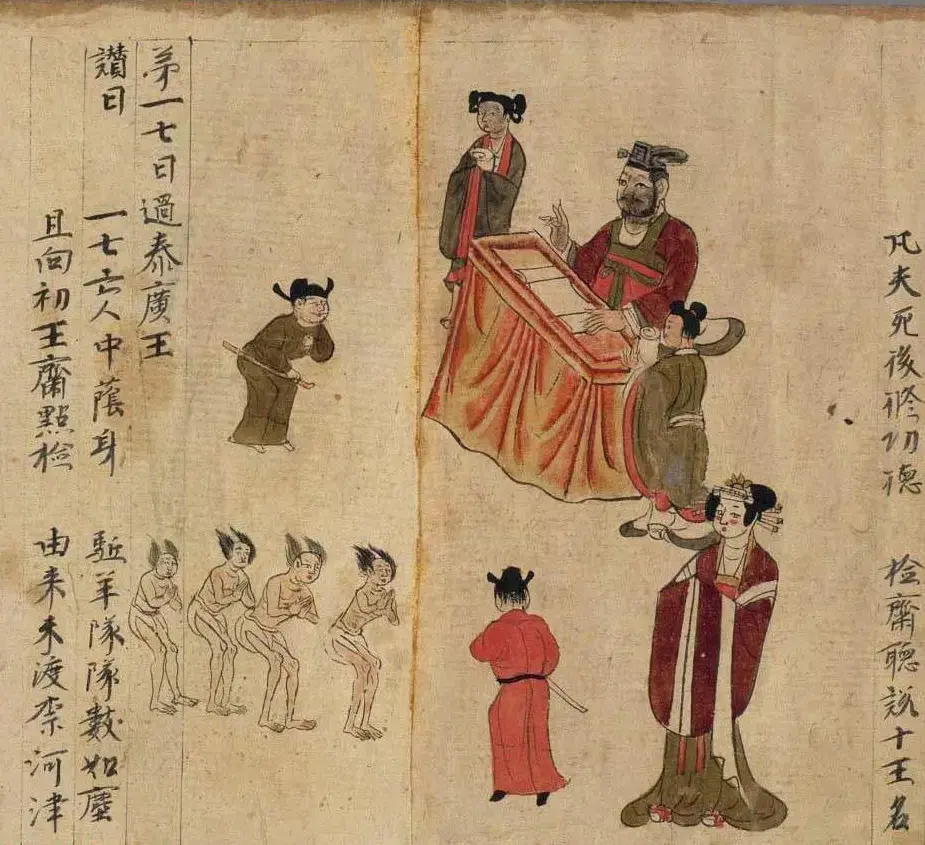 凡夫死後修功德 撿齋聽說十王名
弟一七日過秦廣王
讚曰 一七亡人中蔭身 駈羊隊隊數如塵
且向初王齋點撿 由来未渡柰河津